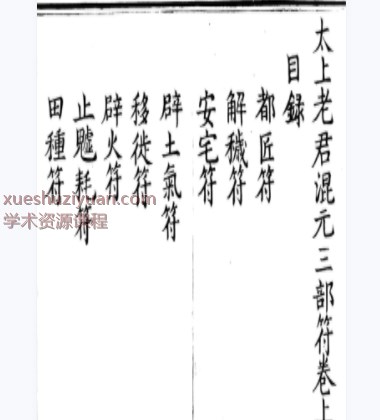 太上老君混元三部符卷上
目録
都匠符
解穢符
安宅符
辟土氣符
移徙符
辟火符
止鼠耗符
田種符
xueshuziyuan.com
学术资源课程